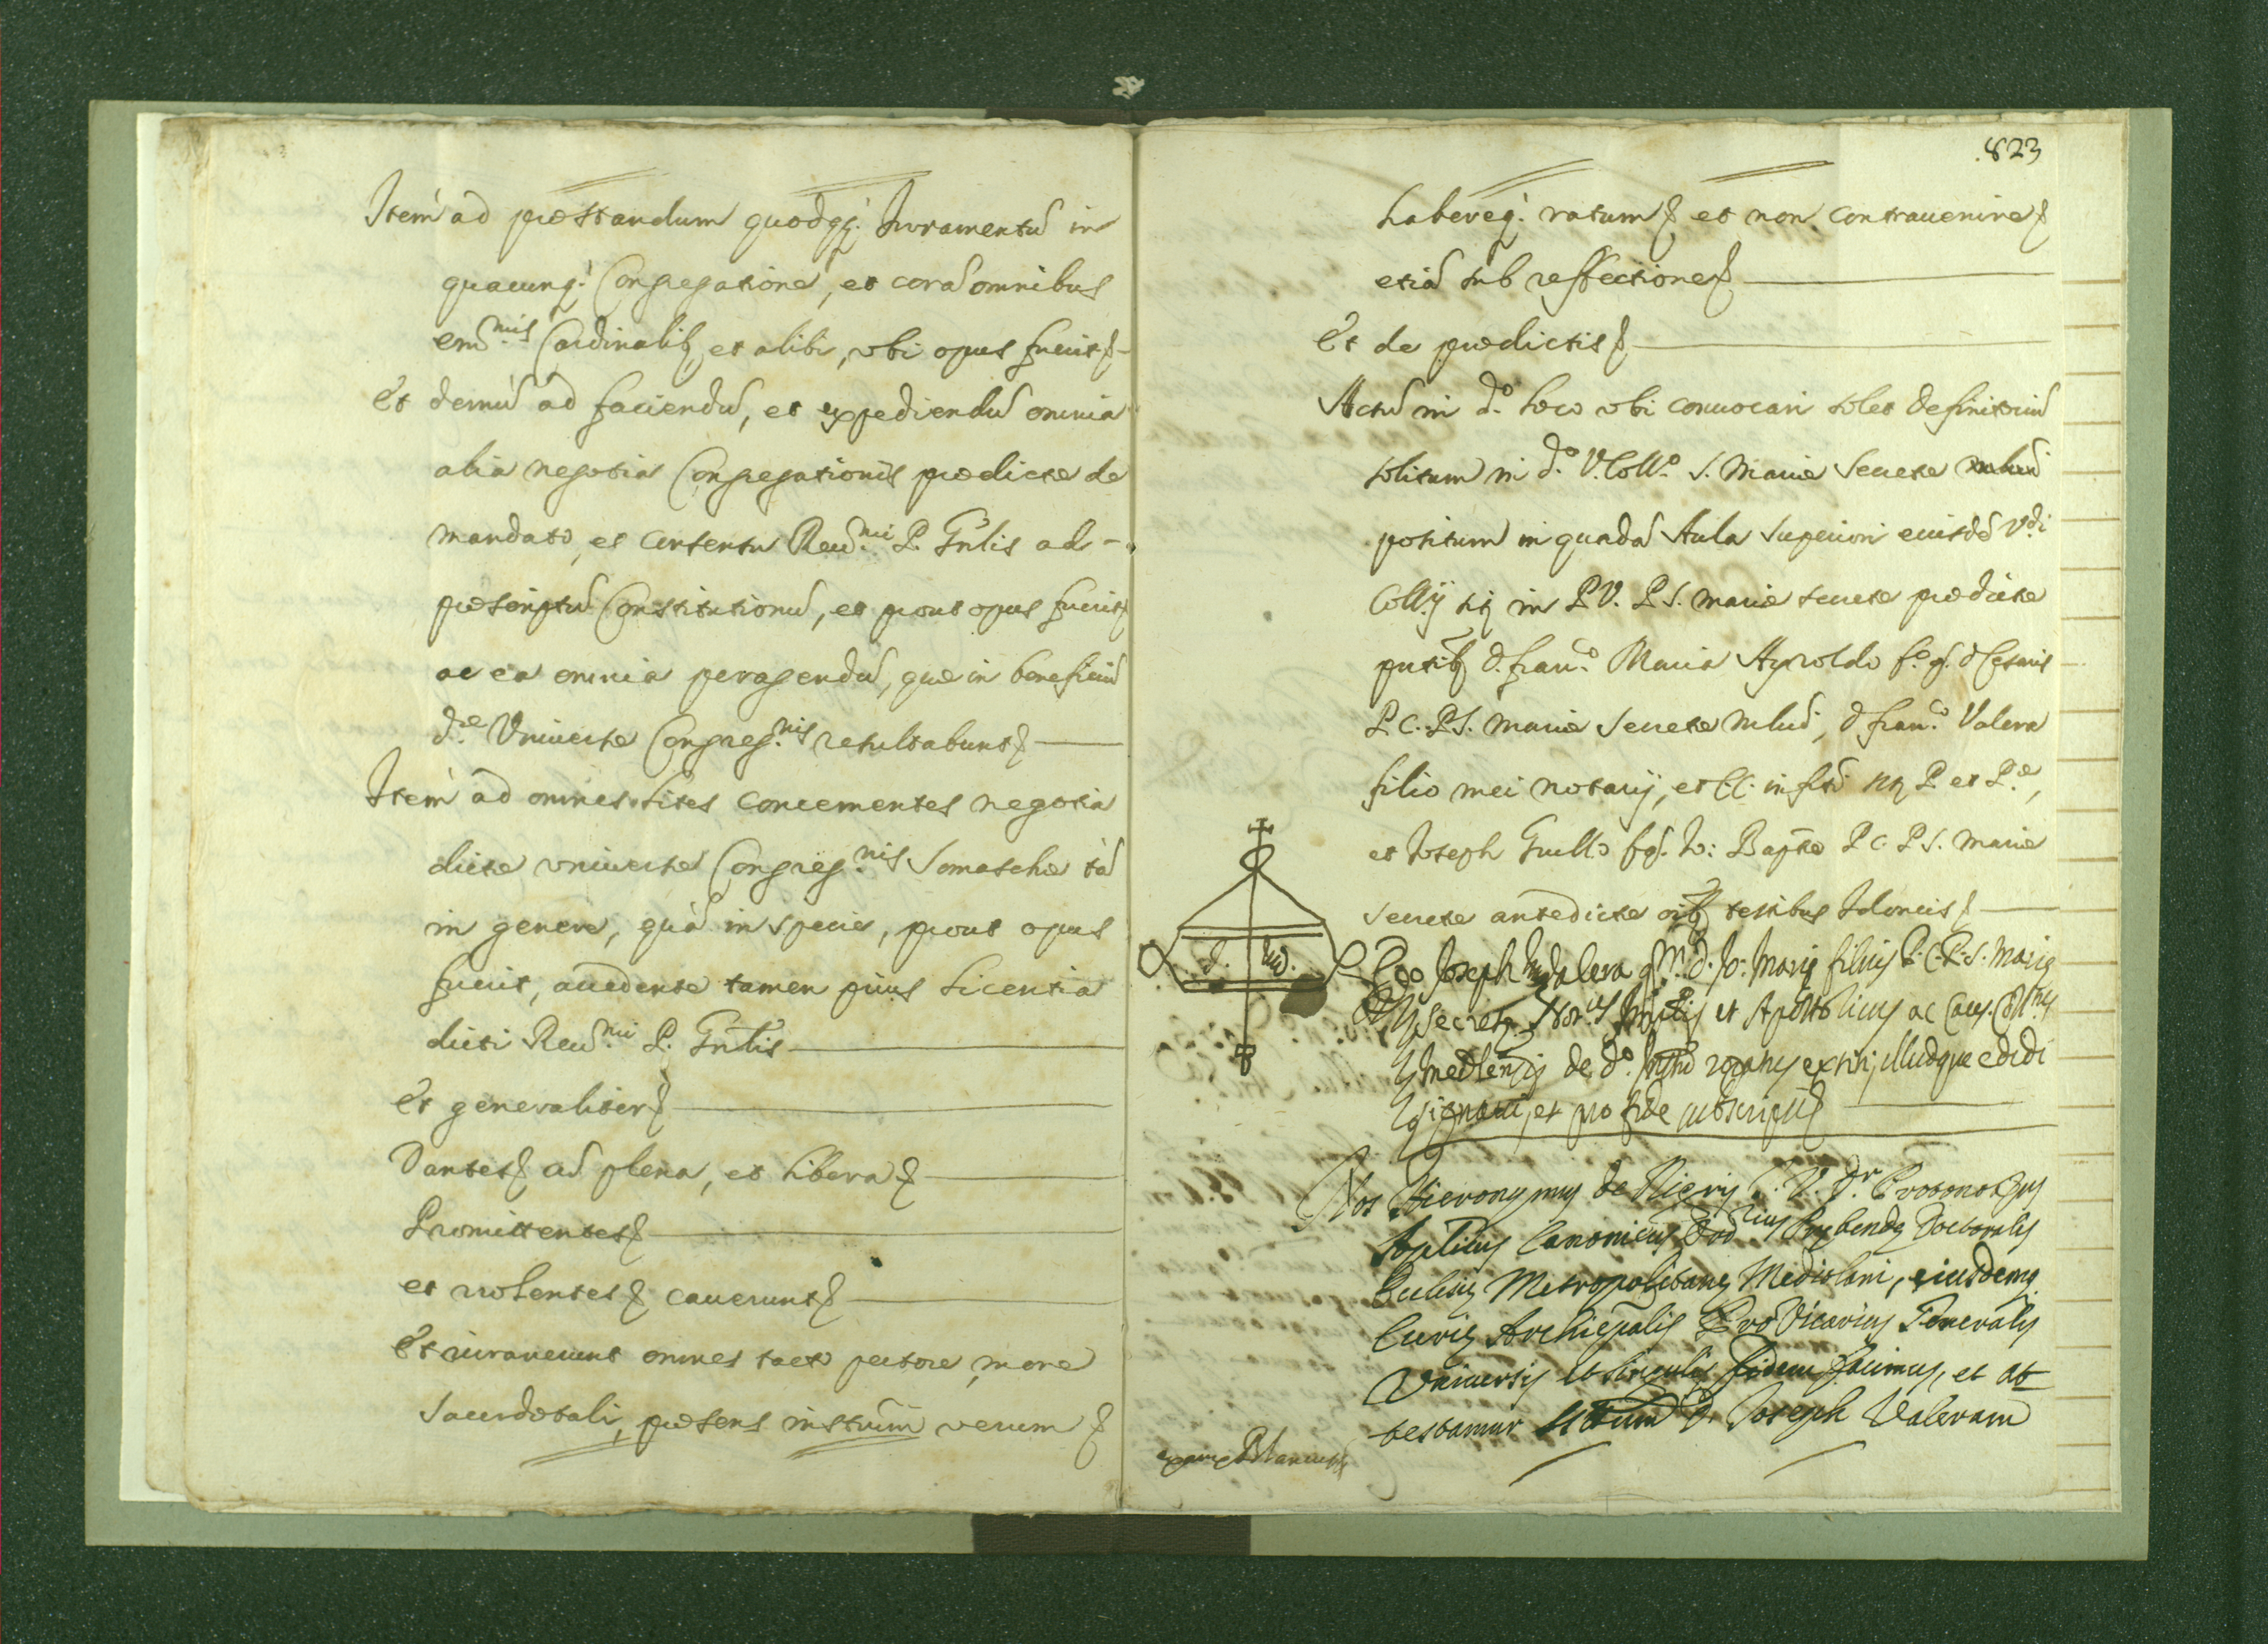 Item ad præstandum quodq;. Juramentũ in
quacunq; Congregatione, et corã omnibus
em.mis Cardinalib; et alibi, vbi opus fuerit
Et demũ ad faciendũ, et expediendũ omnia
alia negotia Congregationis prædictæ de
mandato, et consensu Reu.mi P. Gñlis ad
præscriptũ Constitutionũ, et prout opus fuerit
ac ea omnia peragendũ, quæ in beneficiũ
d.æ Vniuersæ Congreg.nis resultabunt
Item ad omnes lites concernentes negotia
dictæ vniuersæ Congreg.nis Somaschæ tã
in genere, quã in specie, prout opus
fuerit, accedente tamen prius licentia
dicti Reu.mi P. Gñlis
Et generaliter
Dantes ad plena, et libera
Promittentes
et volentes cauerunt
Et iurauerunt omnes tacto pectore, more
Sacerdotali, præsens instrũm verum
823
habereq; ratum et non contrauenire
etiã sub reffectione
Et de prædictis
Actũ in d.o loco vbi conuocari solet definitoriũ
solitum in d.o V. Coll.o S. Mariæ Secretæ
positum in quadã Aula Superiori eiusdẽ V.di
Collij sit; in P.V. P.S. Mariæ secretæ prædictæ
pñtib; d. Fran.o Maria Ayroldo f.o q. d. Cesaris
P.C. P.S. Mariæ Secretæ Mlni, d. Fran.o Valera
filio mei notarij, et CC. infrõ P et P.æ,
et Joseph Grullo f.q. Jo: Baptæ P.C. P.S. Mariæ
Secretæ antedictæ oib; testibus Idoneis
Ego Joseph Valera q.m d. Jo: Mariæ filius P.C.P.S. Mariæ
Secretæ Not.us et Apostolicus ac Caus.
Mediolensis de d.o rogatus extiti, illudque edidi
signaui, et pro fide subscripsi
Nos Hieronymus de J.V.D.r Protonot.us
Aplicus Canonicus Ord.rius Præbendæ Doctoralis
Ecclesiæ Metropolitanæ Mediolani, eiusdemq;
Curiæ Archiepalis Pro Vicarius Generalis
Vniuersis et singulis fidem facimus, et at
testamur D. Joseph Valeram